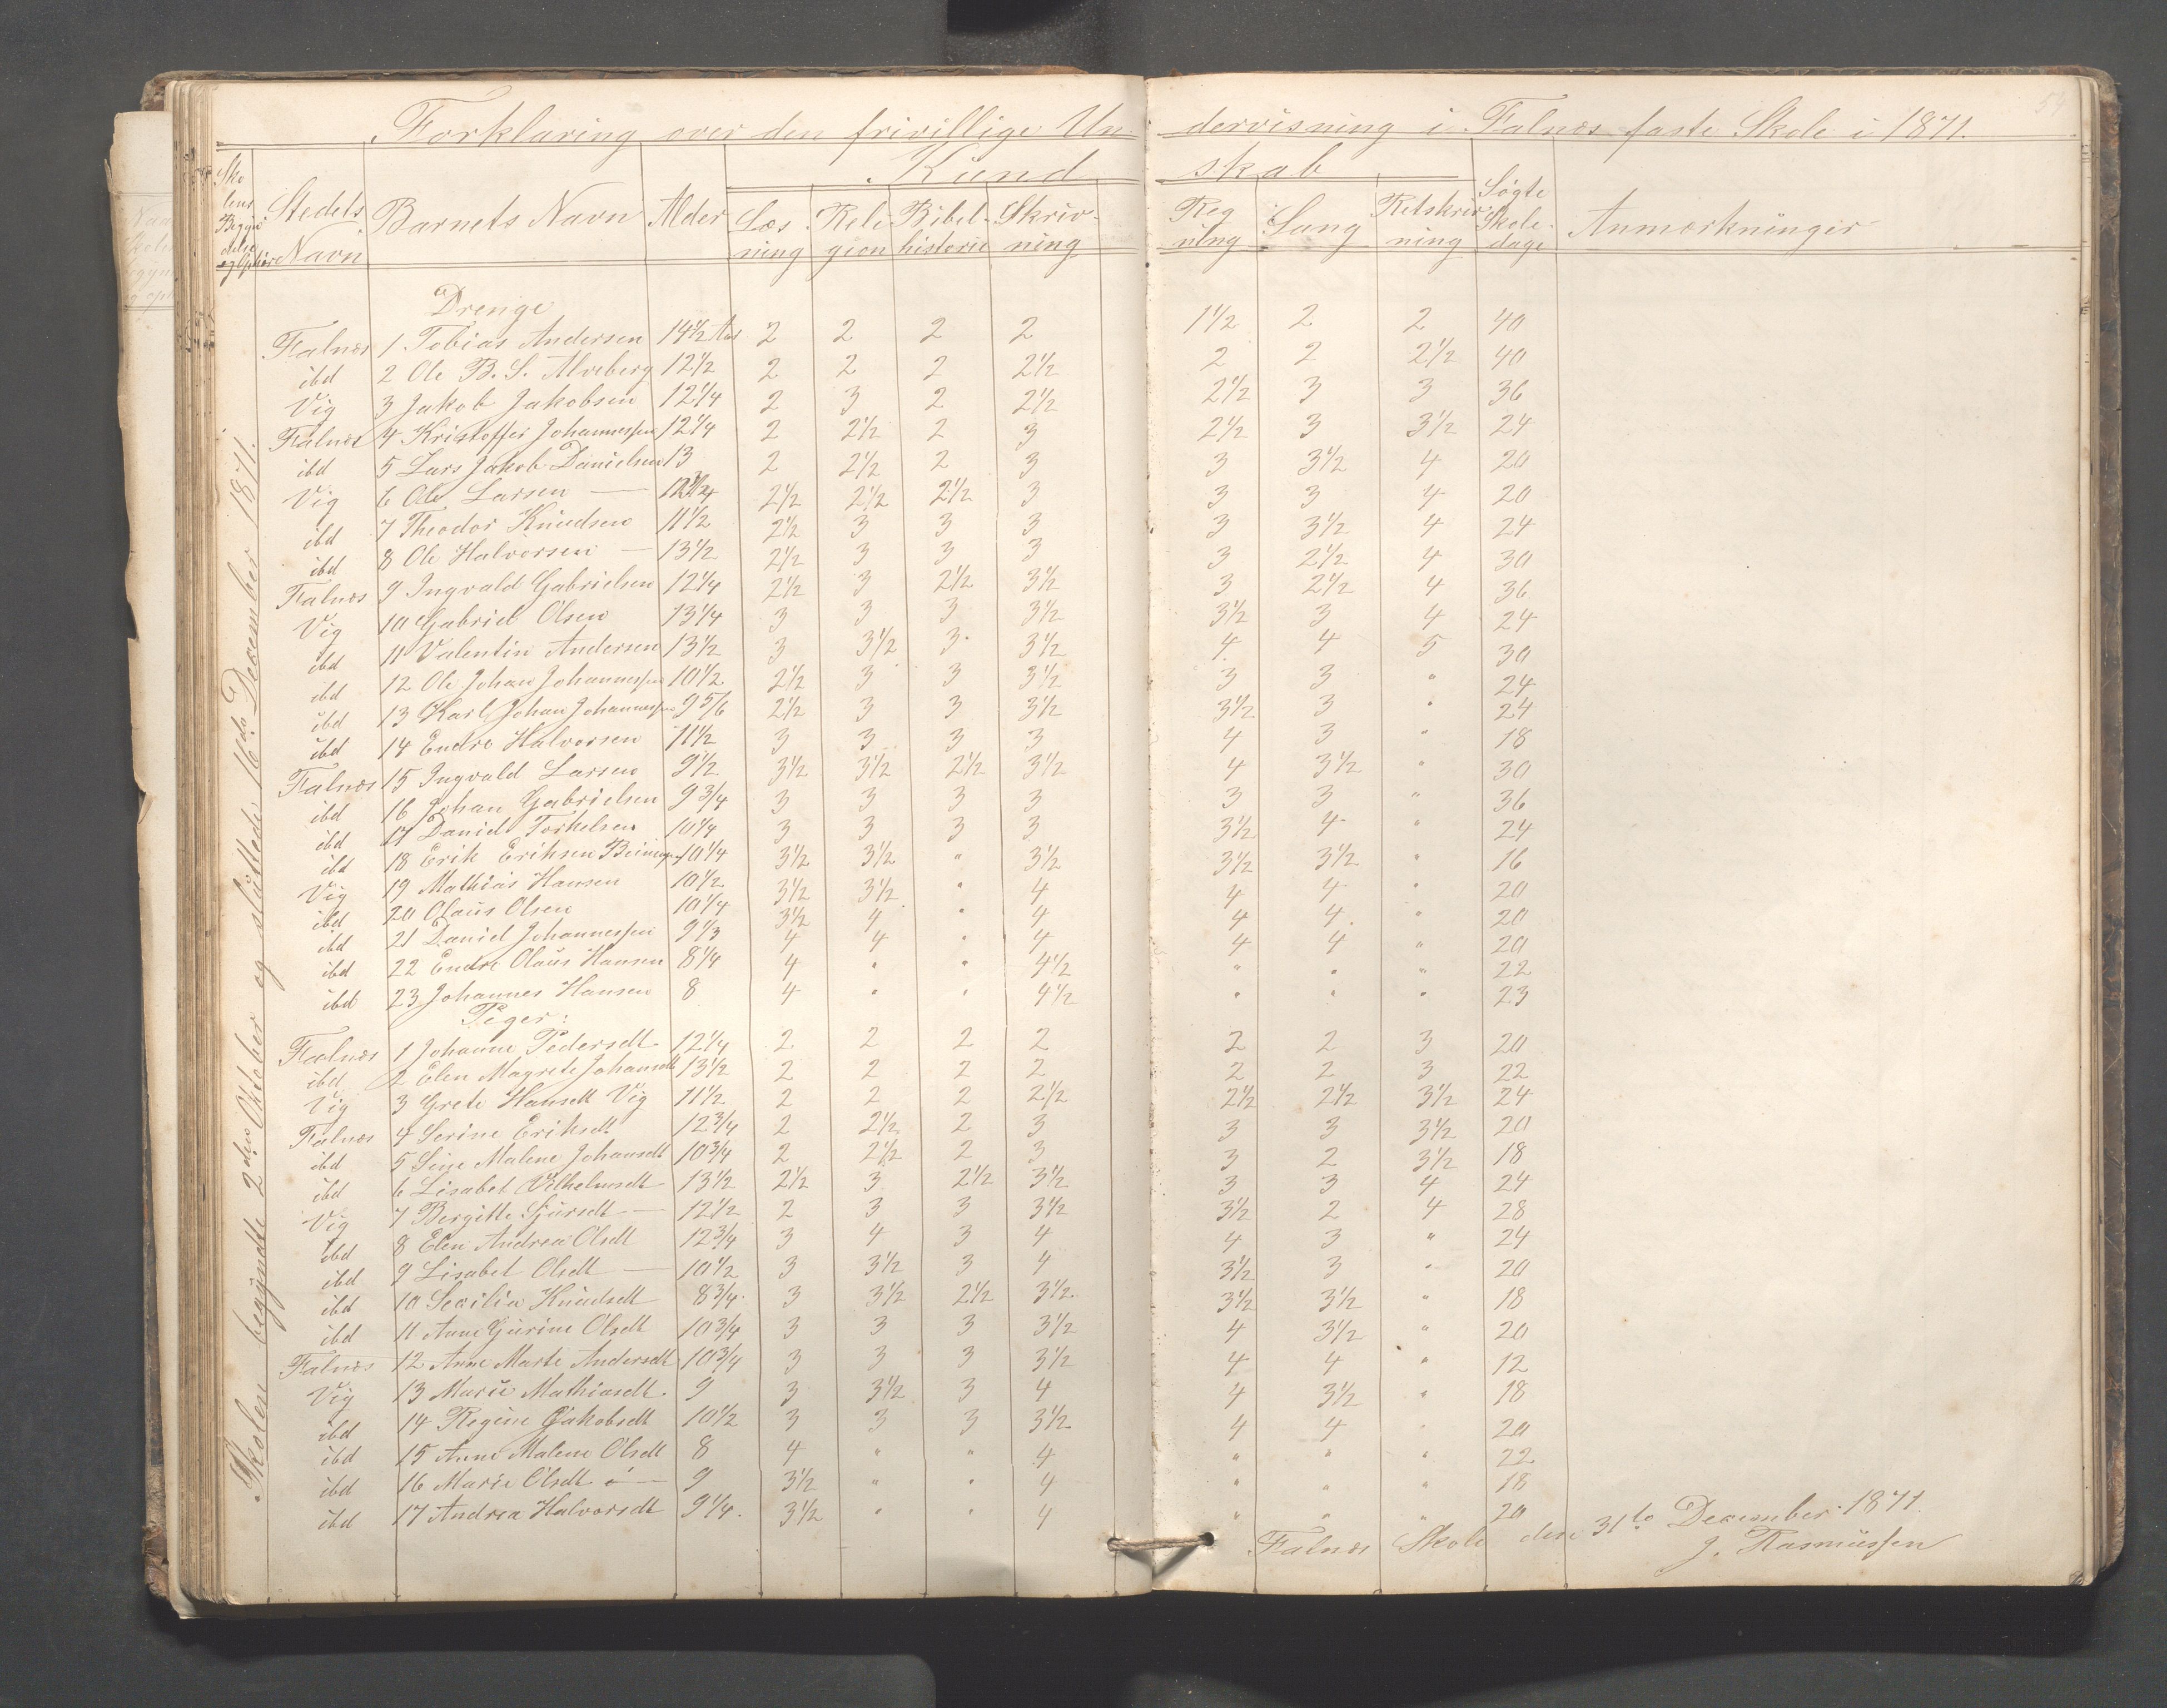 Forklaring over den frivillige Undervisning i Falnæs faste Skole i 1871.
Kundskab
Skolens Begyndelse og Ophør | Stedets Navn | Barnets Navn | Alder | Læsning | Religion | Bibelhistorie | Skrivning | Regning | Sang | Retskrivning | Søgte Skoledage | Anmærkninger
Skolen begyndte 2den Oktober og sluttede 16de December 1871.
Drenge
Falnæs 1 Tobias Andersen 14½ Aar 2 2 2 2 1½ 2 2 40
ibd 2 Ole B. S. Alveberg 12½ 2 2 2 2½ 2 2 2½ 40
Vig 3 Jakob Jakobsen 12¼ 2 3 2 2½ 2½ 3 3 36
Falnæs 4 Kristoffer Johannessen 12¼ 2 2½ 2 3 2½ 3 3½ 24
ibd 5 Lars Jakob Danielsen 13 2 2½ 2 3 3 3½ 4 20
Vig 6 Ole Larsen — 2½ 2½ 2½ 3 3 3 4 20
ibd 7 Theodor Knudsen 11½ 2½ 3 3 3 3 3½ 4 24
ibd 8 Ole Halvorsen — 13½ 2½ 3 3 3 3 2½ 4 30
Falnæs 9 Ingvald Gabrielsen 12¼ 2½ 3 2½ 3½ 3 2½ 4 36
Vig 10 Gabriel Olsen 13¼ 3 3 3 3½ 3½ 3 4 24
ibd 11 Valentin Andersen 13½ 3 3½ 3 3½ 4 4 5 30
ibd 12 Ole Johan Johannessen 10½ 2½ 3 3 3½ 3 3 " 24
ibd 13 Karl Johan Johannessen 9 5/6 2½ 3 3 3½ 3½ 3 " 24
ibd 14 Endre Halvorsen 11½ 3 3 3 3 4 3 " 18
Falnæs 15 Ingvald Larsen 9½ 3½ 3½ 2½ 3½ 4 3½ " 30
ibd 16 Johan Gabrielsen 9¾ 3 3 3 3 3 3 " 36
ibd 17 Daniel Torkelsen 10¼ 3 3 3 3 3½ 4 " 24
ibd 18 Erik Eriksen 10¼ 3½ 3½ " 3½ 3½ 3½ " 16
Vig 19 Mathias Hansen 10½ 3½ 3½ " 4 4 4 " 20
ibd 20 Olaus Olsen 10¼ 3½ 4 " 4 4 4 " 20
ibd 21 Daniel Johannessen 9⅓ 4 4 " 4 4 4 " 20
ibd 22 Endre Olaus Hansen 8¼ 4 " " 4½ " " " 22
ibd 23 Johannes Hansen 8 4 " " 4½ " " " 23
Piger:
Falnæs 1 Johanne Pedersdt 12¼ 2 2 2 2 2 2 3 20
ibd 2 Elen Magrete Johansdt 13½ 2 2 2 2 2 2 3 22
Vig 3 Grete Hansdt Vig 11½ 2 2 2 2½ 2½ 2½ 3½ 24
Falnæs 4 Serine Eriksdt 12¾ 2 2½ 2 3 3 3 3½ 20
ibd 5 Sine Malene Johansdt 10¾ 2 2½ 2 3 3 2 3½ 18
ibd 6 Lisabet Vilhelmsdt 13½ 2½ 3 2½ 3½ 3 3 4 24
Vig 7 Bergitte Sjursdt — 12½ 2 3 3 3½ 3½ 2 4 28
ibd 8 Elen Andrea Olsdt 12¾ 3 4 3 4 4 3 " 24
ibd 9 Lisabet Olsdt — 10½ 3 3½ 3 4 3½ 3 " 20
ibd 10 Secilia Knudsdt 8¾ 3 3½ 2½ 3½ 3½ 3½ " 18
ibd 11 Anne Gurine Olsdt 10¾ 3 3 3 3½ 4 3½ " 20
Falnæs 12 Anne Marte Andersdt 10¾ 3 3 3 3½ 4 4 " 12
Vig 13 Marie Mathiasdt. 9 3 3½ 3 4 4 3½ " 18
ibd 14 Regine Jakobsdt 10½ 3 3 3 3½ 4 4 " 20
ibd 15 Anne Malene Olsdt 8 4 " " 4 " " " 22
ibd 16 Marie Olsdt — 9 3½ " " 4 " " " 18
ibd 17 Andrea Halvorsdt 9¼ 3½ " " 4 " " " 20
Falnæs Skole den 31te December 1871.
J. Rasmussen